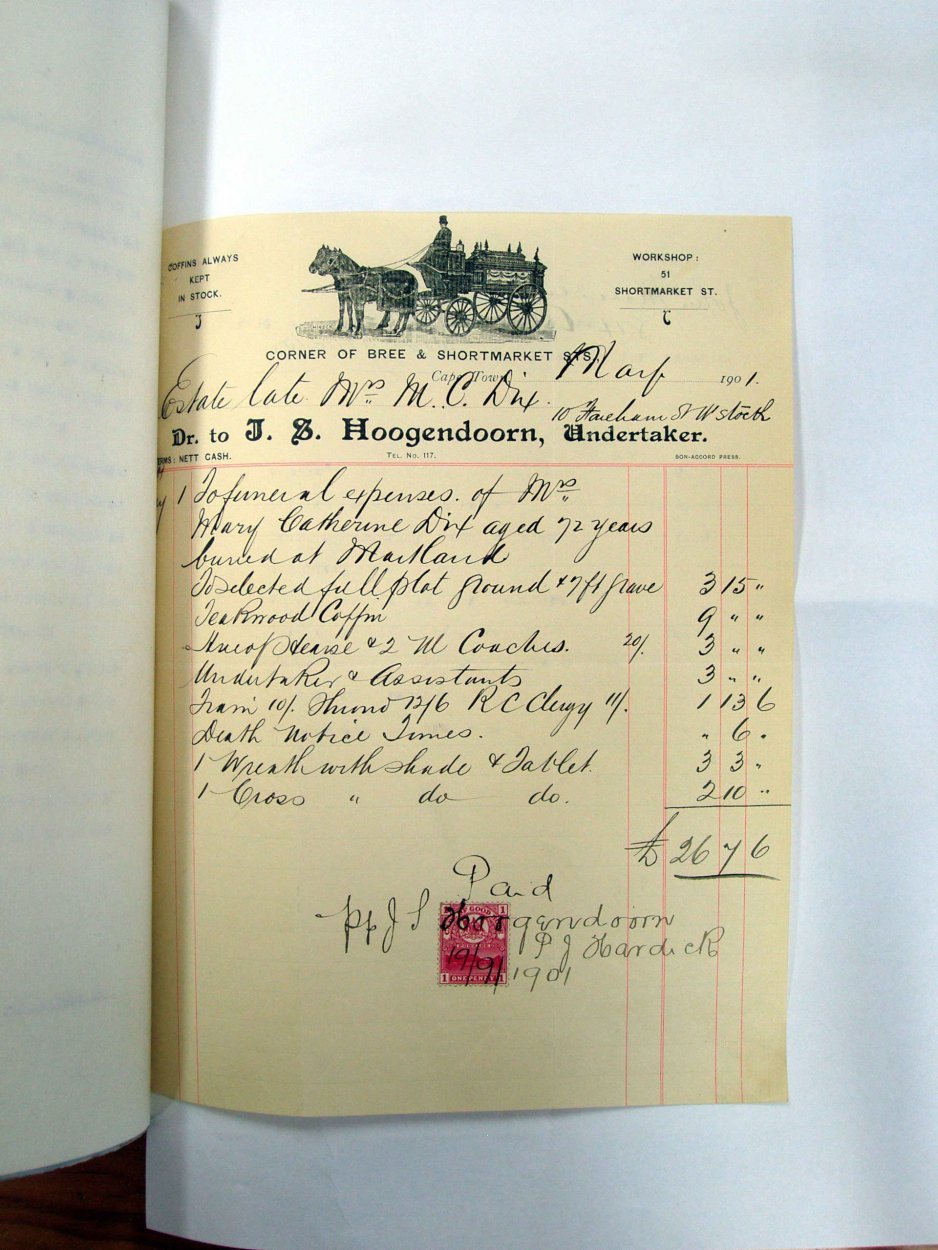 COFFINS ALWAYS
KEPT
IN STOCK.
WORKSHOP:
51
SHORTMARKET ST.
CORNER OF BREE & SHORTMARKET STS.,
Cape Town, 1901.
Estate late Mrs M. C. Dix.
10 Fareham St W stock
Dr. to J. S. Hoogendoorn, Undertaker.
TERMS: NETT CASH.
TEL. NO. 117.
BON-ACCORD PRESS.
1 To funeral expenses of Mrs
Mary Catherine Dix aged 72 years
buried at Maitland
To selected full plot ground & 7 ft grave 3 15 "
Teakwood Coffin 9 " "
Hire of Hearse & 2 M Coaches. 20/. 3 " "
Undertaker & Assistants 3 " "
Train 10/. Shroud 12/6 R C Clergy 11/. 1 13 6
Death Notice Times. " 6 "
1 Wreath with shade & Tablet. 3 3 "
1 Cross " do do. 2 10 "
£ 26 7 6
Paid
pp J S Hoogendoorn
P J Hardick
19/9/1901
GOOD
1 1
1 ONE PENNY 1